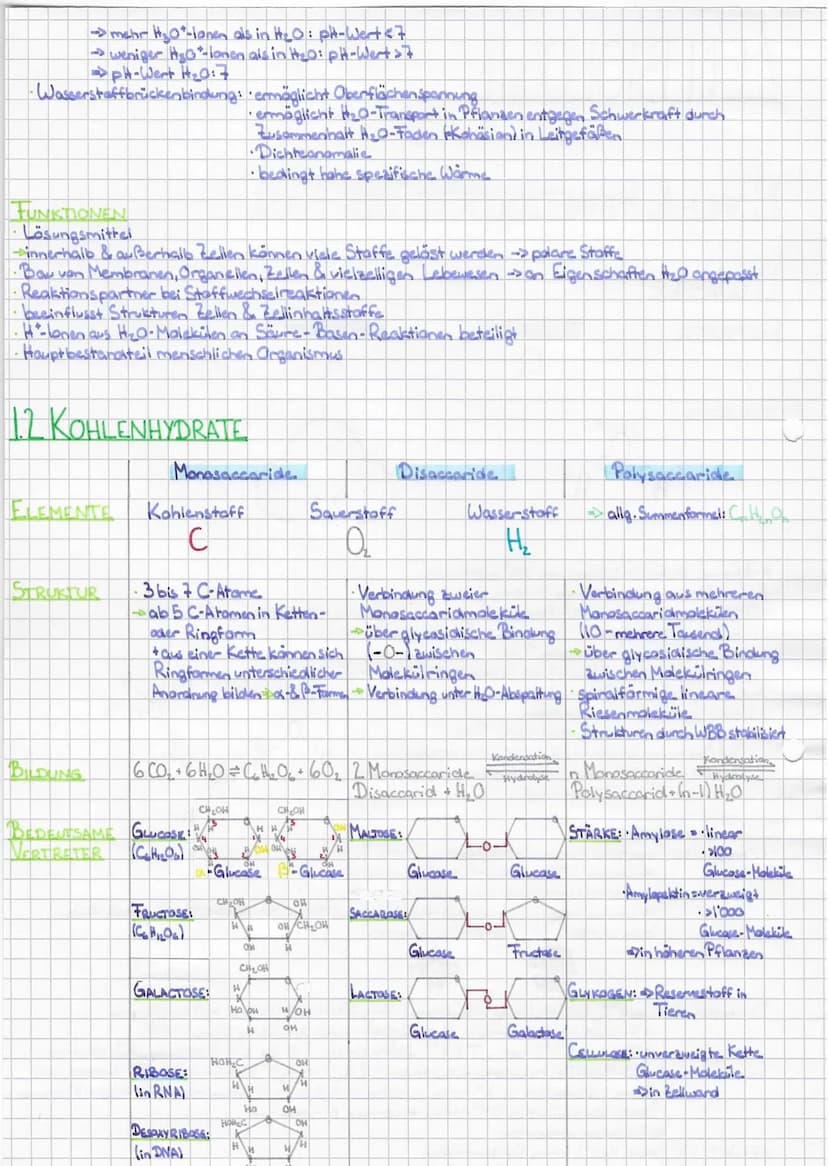 ⇒ mehr H₃O⁺-Ionen als in H₂O: pH-Wert < 7
→ weniger H₃O⁺-Ionen als in H₂O: pH-Wert > 7
⇒ pH-Wert H₂O: 7
· Wasserstoffbrückenbindung: · ermöglicht Oberflächenspannung
· ermöglicht H₂O-Transport in Pflanzen entgegen Schwerkraft durch
Zusammenhalt H₂O-Faden (Kohäsion) in Leitgefäßen
· Dichteanomalie
· bedingt hohe spezifische Wärme
FUNKTIONEN
· Lösungsmittel
→ innerhalb & außerhalb Zellen können viele Stoffe gelöst werden → polare Stoffe
· Bau von Membranen, Organellen, Zellen & vielzelligen Lebewesen → an Eigenschaften H₂O angepasst
· Reaktionspartner bei Stoffwechselreaktionen
· beeinflusst Strukturen Zellen & Zellinhaltsstoffe
· H⁺-Ionen aus H₂O-Molekülen an Säure-Basen-Reaktionen beteiligt
· Hauptbestandteil menschlichen Organismus
1.2 KOHLENHYDRATE
Monosaccaride Disaccaride Polysaccaride
ELEMENTE Kohlenstoff Sauerstoff Wasserstoff ⇒ allg. Summenformel: CₙH₂ₙOₙ
C O₂ H₂
STRUKTUR
· 3 bis 7 C-Atome
→ ab 5 C-Atomen in Ketten-
oder Ringform
+ aus einer Kette können sich
Ringformen unterschiedlicher
Anordnung bilden ⇒ α- & β-Formen
· Verbindung zweier
Monosaccaridmoleküle
→ über glycosidische Bindung
(-O-) zwischen
Molekülringen
→ Verbindung unter H₂O-Abspaltung
· Verbindung aus mehreren
Monosaccaridmolekülen
(10 - mehrere Tausend)
→ über glycosidische Bindung
zwischen Molekülringen
· spiralförmige, lineare
Riesenmoleküle
· Strukturen durch WBB stabilisiert
BILDUNG
6 CO₂ + 6 H₂O ⇌ C₆H₁₂O₆ + 6 O₂
2 Monosaccaride Kondensation Hydrolyse
Disaccarid + H₂O
n Monosaccaride Kondensation Hydrolyse
Polysaccarid + (n-1) H₂O
BEDEUTSAME
VERTRETER
GLUCOSE:
(C₆H₁₂O₆)
CH₂OH CH₂OH
α-Glucose β-Glucose
FRUCTOSE:
(C₆H₁₂O₆)
CH₂OH OH
H H OH CH₂OH
OH H
GALACTOSE:
CH₂OH
H
HO OH H OH
H OH
RIBOSE:
(in RNA)
HOH₂C OH
H H H H
HO OH
DESOXYRIBOSE:
(in DNA)
HOH₂C OH
H H H H
MALTOSE:
O
Glucose Glucose
SACCAROSE:
O
Glucose Fructose
LACTOSE:
O
Glucose Galactose
STÄRKE: · Amylose = · linear
· >100
Glucose-Moleküle
· Amylopektin = verzweigt
· >1'000
Glucose-Moleküle
⇒ in höheren Pflanzen
GLYKOGEN: ⇒ Reservestoff in
Tieren
CELLULOSE: · unverzweigte Kette
Glucose-Moleküle
⇒ in Zellwand